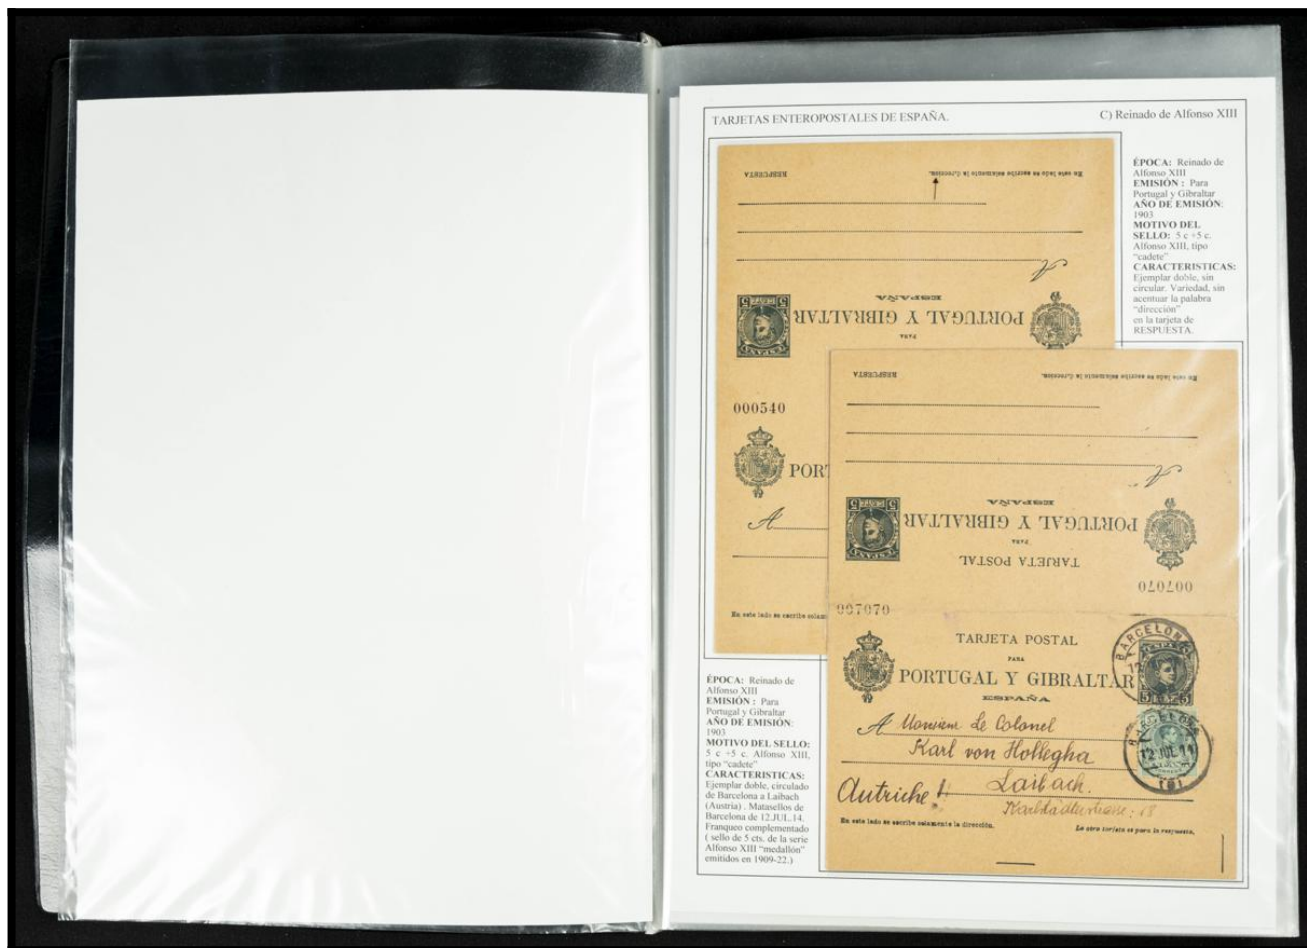 TARJETAS ENTEROPOSTALES DE ESPAÑA.
C) Reinado de Alfonso XIII
ÉPOCA: Reinado de
Alfonso XIII
EMISIÓN : Para
Portugal y Gibraltar
AÑO DE EMISIÓN:
1903
MOTIVO DEL
SELLO: 5 c +5 c.
Alfonso XIII, tipo
“cadete”
CARACTERISTICAS:
Ejemplar doble, sin
circular. Variedad, sin
acentuar la palabra
“dirección”
en la tarjeta de
RESPUESTA.
RESPUESTA
En este lado se escribe solamente la direccion.
A
ESPAÑA
PORTUGAL Y GIBRALTAR
PARA
5 5
ESPAÑA
000540
PORT
A
En este lado se escribe solam
RESPUESTA
En este lado se escribe solamente la direccion.
A
ESPAÑA
PORTUGAL Y GIBRALTAR
PARA
TARJETA POSTAL
5 5
ESPAÑA
007070
007070
TARJETA POSTAL
PARA
PORTUGAL Y GIBRALTAR
ESPAÑA
BARCELONA
12
5 5
BARCELONA
12 JUL 14
A Monsieur Le Colonel
Karl von Hollegha
Laibach.
Autriche
18
En este lado se escribe solamente la dirección.
La otra tarjeta es para la respuesta.
ÉPOCA: Reinado de
Alfonso XIII
EMISIÓN : Para
Portugal y Gibraltar
AÑO DE EMISIÓN:
1903
MOTIVO DEL SELLO:
5 c +5 c. Alfonso XIII,
tipo “cadete”
CARACTERISTICAS:
Ejemplar doble, circulado
de Barcelona a Laibach
(Austria) . Matasellos de
Barcelona de 12.JUL.14.
Franqueo complementado
( sello de 5 cts. de la serie
Alfonso XIII “medallón”
emitidos en 1909-22.)